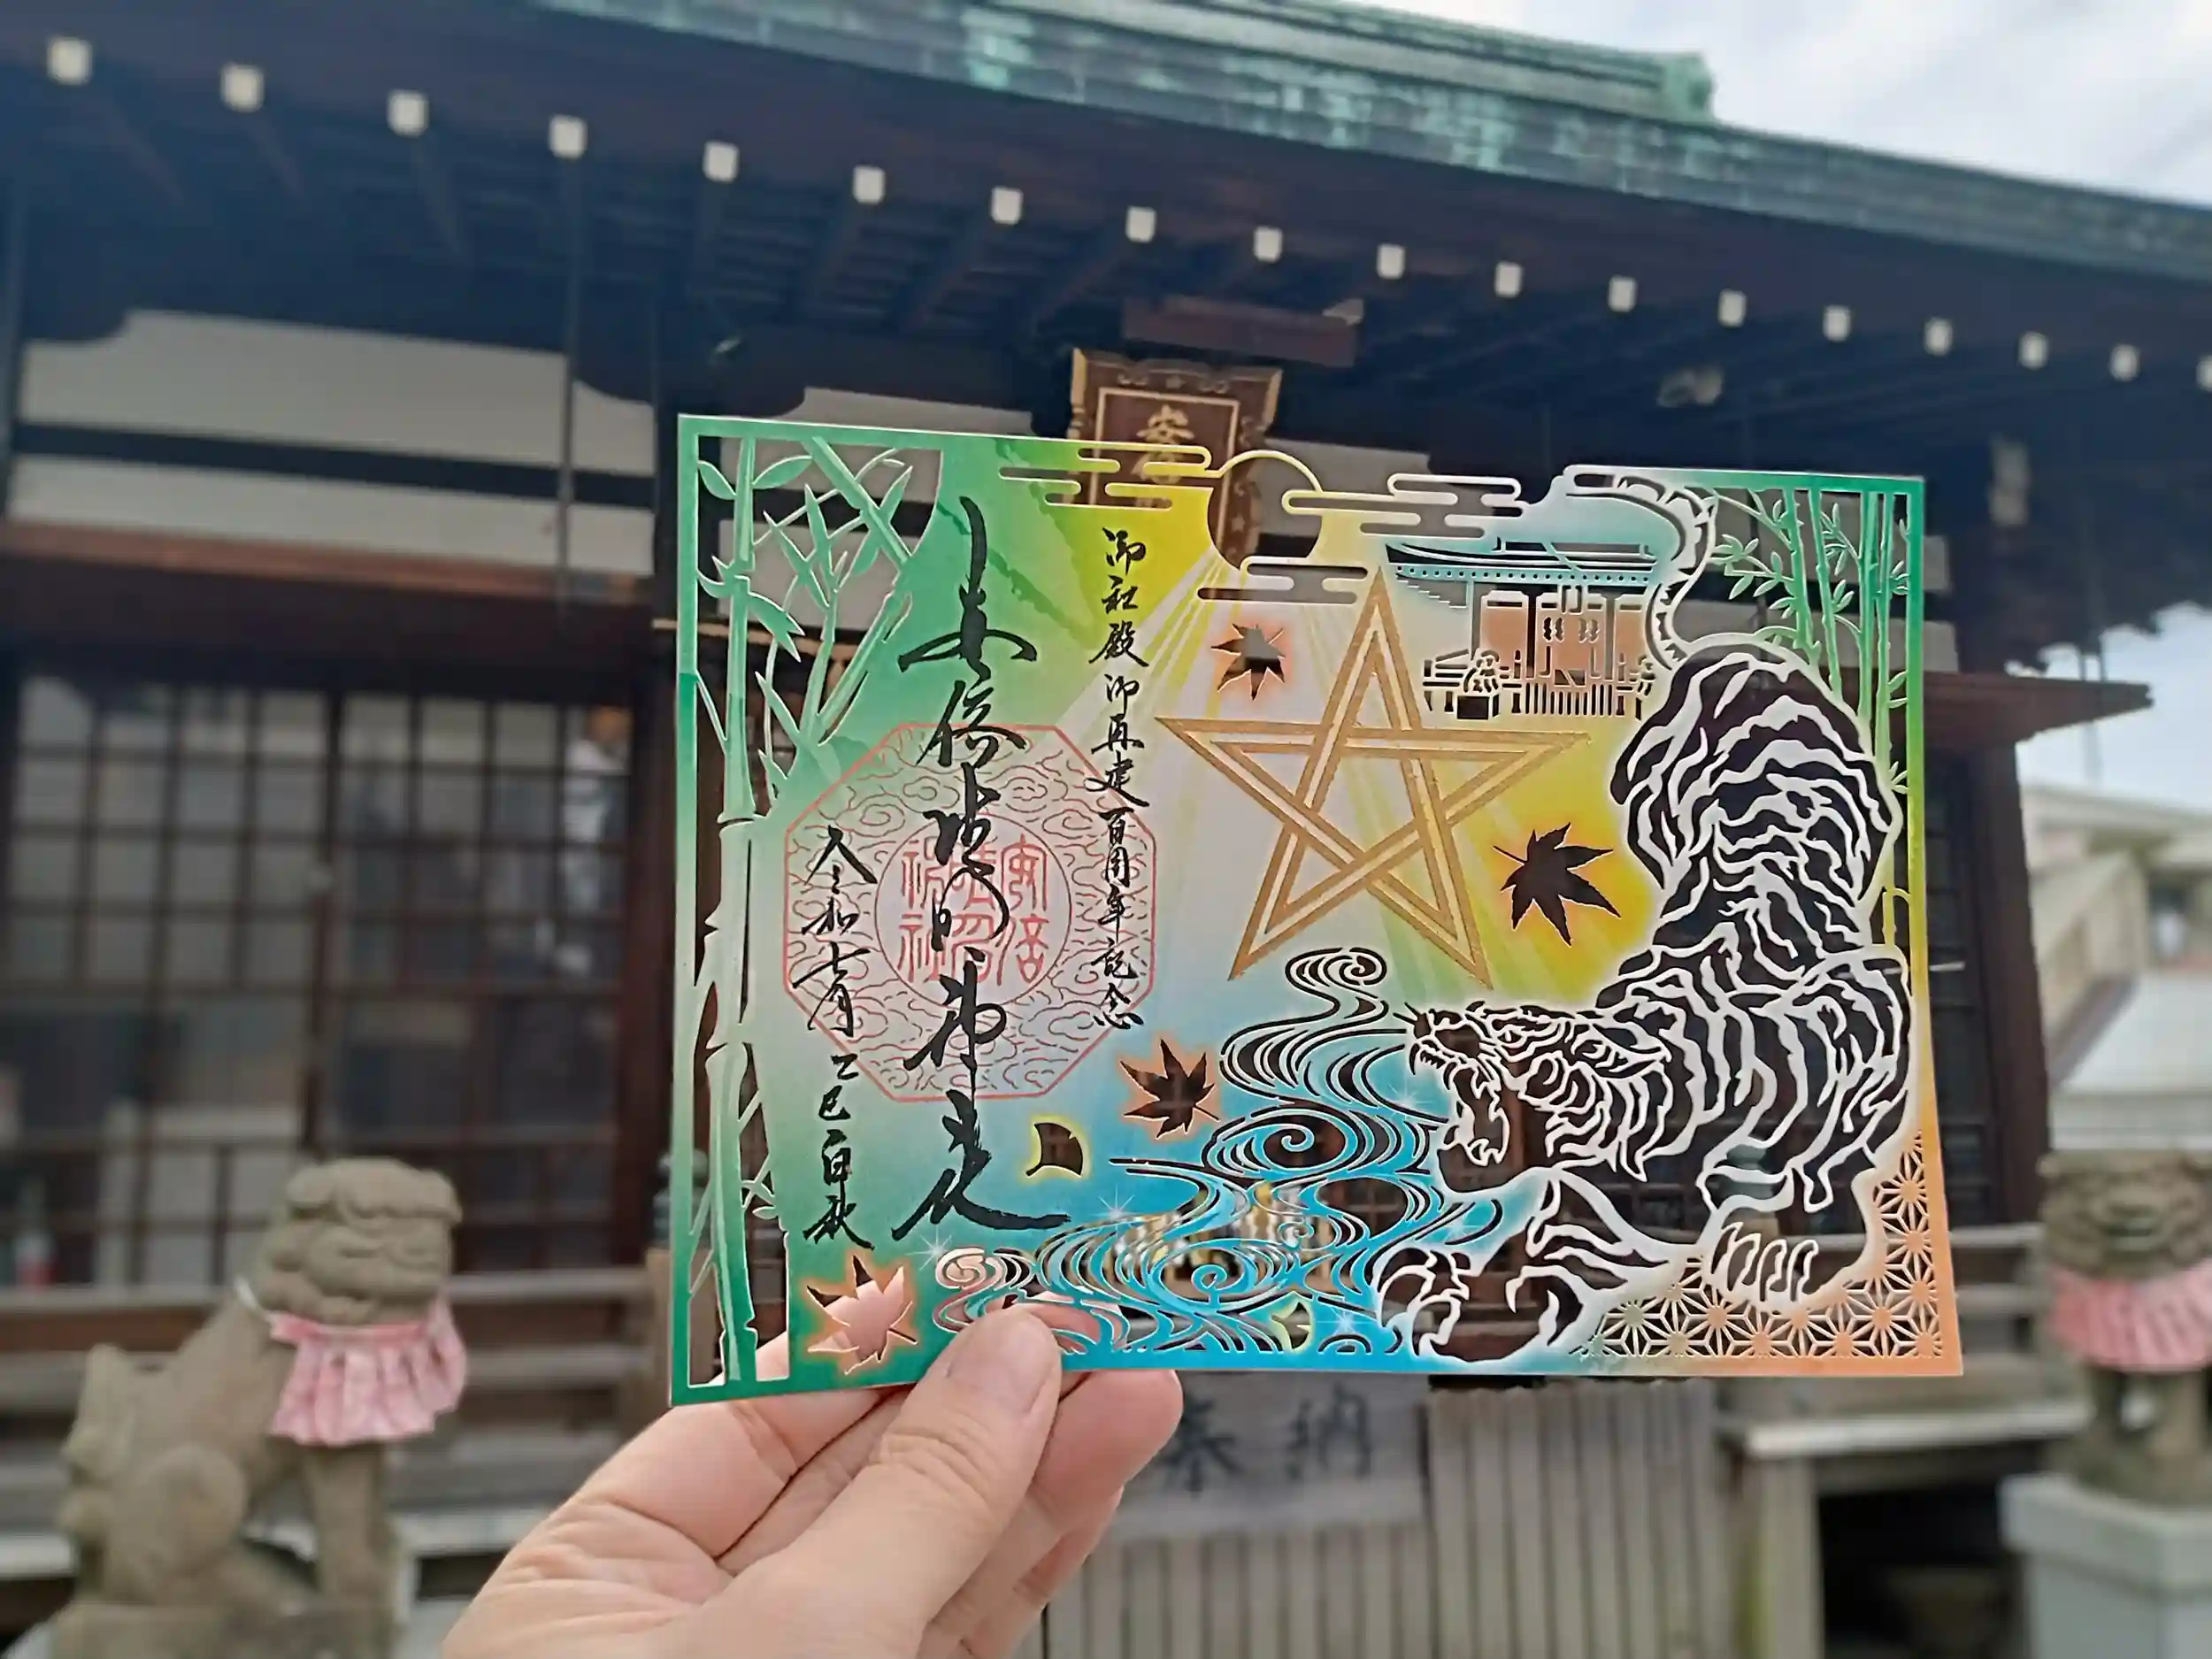 安倍
御社殿御再建百周年記念
安倍晴明神社
令和七年 乙巳 白秋
安倍
晴明
神社
奉納